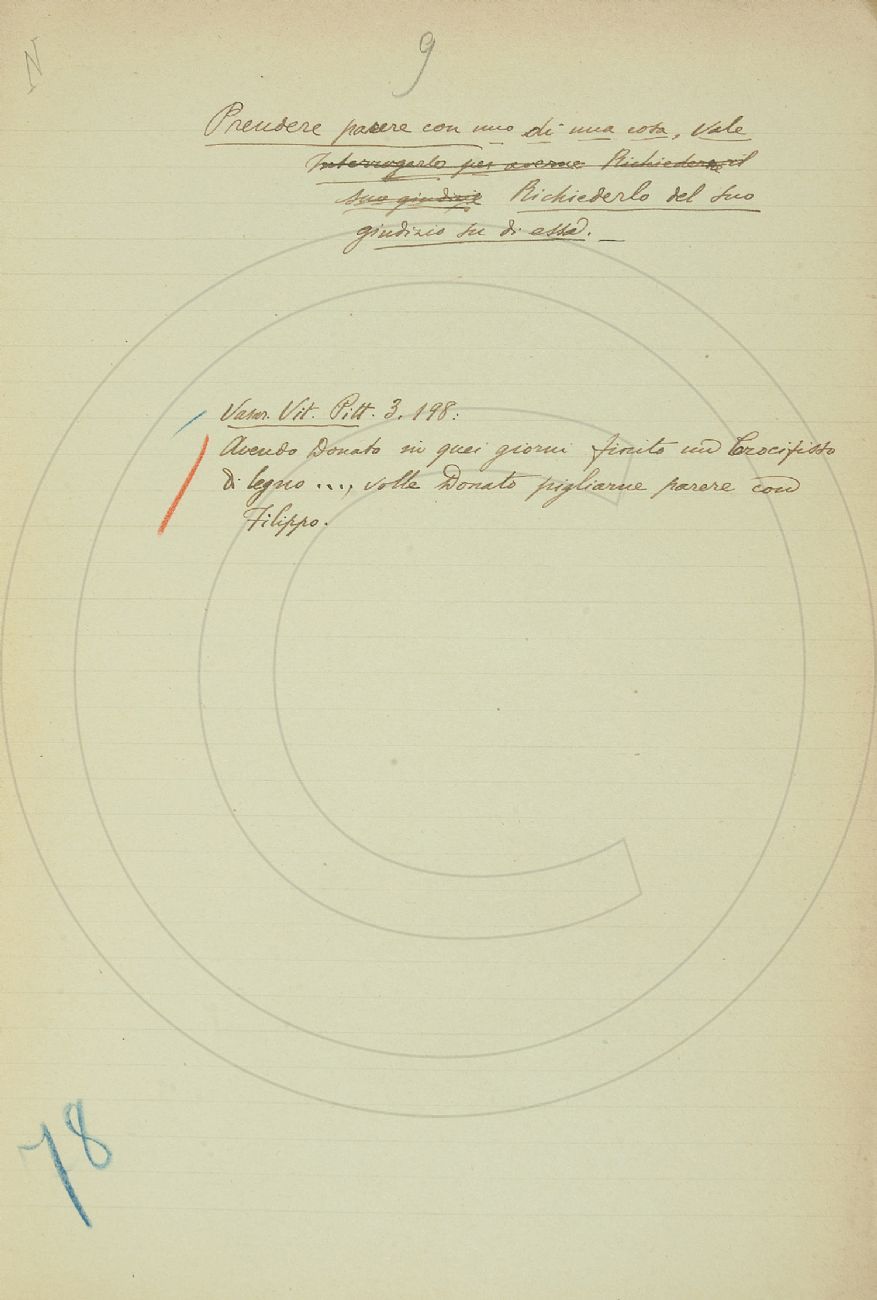 N
9
Prendere parere con uno di una cosa, vale
Interrogarlo per averne Richiedere il
suo giudizi Richiederlo del suo
giudizio su di essa. _
Vasar. Vit. Pitt. 3. 198:
Avendo Donato in quei giorni finito un Crocifisso
di legno ..., volle Donato pigliarne parere con
Filippo.
78